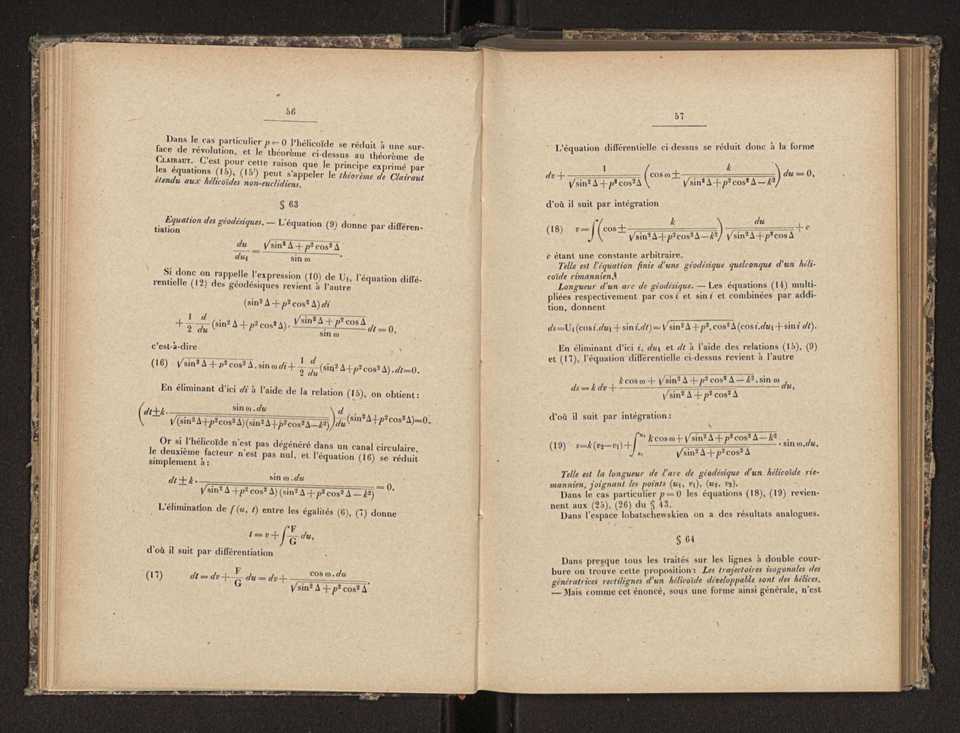 56
Dans le cas particulier p = 0 l'hélicoïde se réduit à une sur-
face de révolution, et le théorème ci-dessus au théorème de
CLAIRAUT. C'est pour cette raison que le principe exprimé par
les équations (15), (15') peut s'appeler le théorème de Clairaut
étendu aux hélicoïdes non-euclidiens.
§ 63
Equation des géodésiques. — L'équation (9) donne par différen-
tiation
du/du₁ = √(sin² Δ + p² cos² Δ) / sin ω .
Si donc on rappelle l'expression (10) de U₁, l'équation diffé-
rentielle (12) des géodésiques revient à l'autre
(sin² Δ + p² cos² Δ) di
+ 1/2 d/du (sin² Δ + p² cos² Δ). √(sin² Δ + p² cos Δ) / sin ω dt = 0,
c'est-à-dire
(16) √(sin² Δ + p² cos² Δ) . sin ω di + 1/2 d/du (sin² Δ + p² cos² Δ). dt = 0.
En éliminant d'ici di à l'aide de la relation (15), on obtient :
(dt ± k. sin ω . du / √((sin² Δ + p² cos² Δ)(sin² Δ + p² cos² Δ — k²))) d/du (sin² Δ + p² cos² Δ) = 0.
Or si l'hélicoïde n'est pas dégénéré dans un canal circulaire,
le deuxième facteur n'est pas nul, et l'équation (16) se réduit
simplement à :
dt ± k . sin ω . du / √(sin² Δ + p² cos² Δ) (sin² Δ + p² cos² Δ — k²) = 0.
L'élimination de f (u, t) entre les égalités (6), (7) donne
t = v + ∫ F/G du,
d'où il suit par différentiation
(17) dt = dv + F/G du = dv + cos ω . du / √(sin² Δ + p² cos² Δ) .
57
L'équation différentielle ci-dessus se réduit donc à la forme
dv + 1 / √(sin² Δ + p² cos² Δ) (cos ω ± k / √(sin² Δ + p² cos² Δ — k²)) du = 0,
d'où il suit par intégration
(18) v = ∫ (cos ± k / √(sin² Δ + p² cos² Δ — k²)) du / √(sin² Δ + p² cos Δ) + c
c étant une constante arbitraire.
Telle est l'équation finie d'une géodésique quelconque d'un héli-
coïde rimannien.
Longueur d'un arc de géodésique. — Les équations (14) multi-
pliées respectivement par cos i et sin i et combinées par addi-
tion, donnent
ds = U₁ (cos i.du₁ + sin i.dt) = √(sin² Δ + p². cos² Δ) (cos i.du₁ + sin i dt).
En éliminant d'ici i, du₁ et dt à l'aide des relations (15), (9)
et (17), l'équation différentielle ci-dessus revient à l'autre
ds = k dv + k cos ω + √(sin² Δ + p² cos² Δ — k²) . sin ω / √(sin² Δ + p² cos² Δ) du,
d'où il suit par intégration :
(19) s = k (v₂ — v₁) + ∫ u₁ u₂ k cos ω + √(sin² Δ + p² cos² Δ — k²) / √(sin² Δ + p² cos² Δ) . sin ω.du,
Telle est la longueur de l'arc de géodésique d'un hélicoïde rie-
mannien, joignant les points (u₁, v₁), (u₂, v₂).
Dans le cas particulier p = 0 les équations (18), (19) revien-
nent aux (25), (26) du § 43.
Dans l'espace lobatschewskien on a des résultats analogues.
§ 64
Dans presque tous les traités sur les lignes à double cour-
bure on trouve cette proposition : Les trajectoires isogonales des
génératrices rectilignes d'un hélicoïde développable sont des hélices.
— Mais comme cet énoncé, sous une forme ainsi générale, n'est